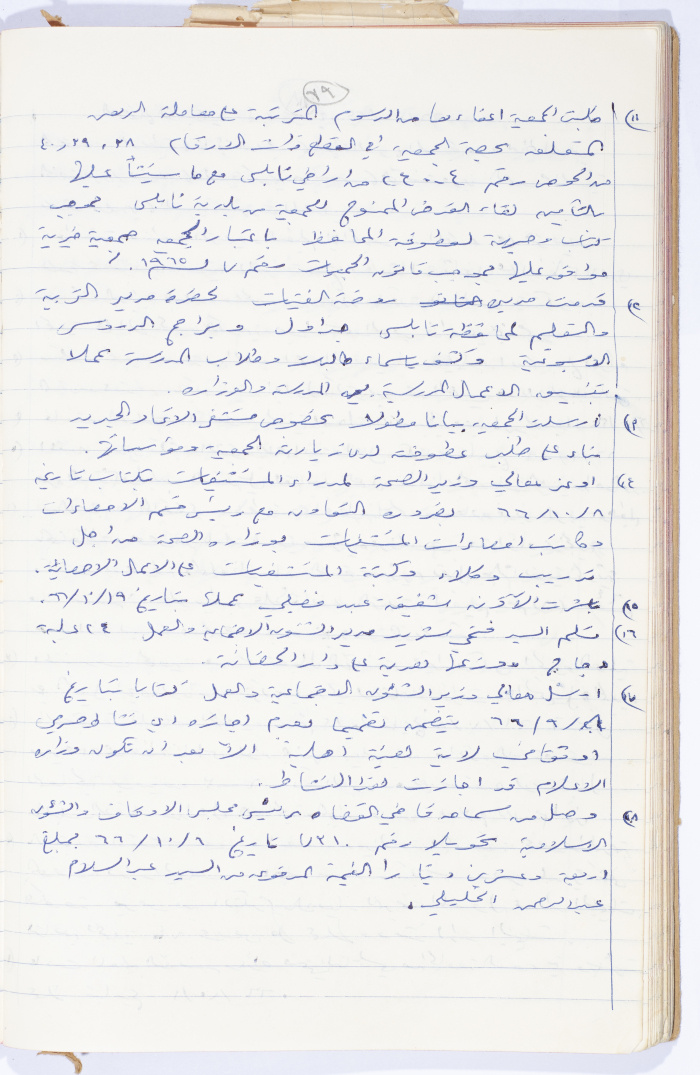 ٧٩
١١) طلبت الجمعية اعفاءها من الرسوم المترتبة على معاملة الرهن
المتعلقة بحصة الجمعية في القطع ذات الارقام ٣٨ ، ٣٩ ، ٤٠
من الحوض رقم ٢٤٠٠٤ من اراضي نابلس مع ما سينشأ عليها
بالتأمين لقاء القرض الممنوح للجمعية من بلدية نابلس بموجب
كتاب وجهته لعطوفة المحافظ باعتبار الجمعية جمعية خيرية
موافق عليها بموجب قانون الجمعيات رقم ٧ لسنة ١٩٦٥ .
١٢) قدمت مديرة روضة الفتيات لحضرة مدير التربية
والتعليم لمحافظة نابلس جداول وبرامج الدروس
الاسبوعية وكشف باسماء طالبات وطلاب المدرسة عملا
بتنسيق الاعمال المدرسية بين المدرسة والوزارة .
١٣) ارسلت الجمعية بيانا مطولا بخصوص مستشفى الاتحاد الجديد
بناء على طلب عطوفته لدى زيارته الجمعية ومؤسساتها .
١٤) اوعز معالي وزير الصحة لمدراء المستشفيات بكتاب تاريخ
٦٦/١٠/٨ بضرورة التعاون مع رئيس قسم الاحصاءات
وكاتب احصاءات المستشفيات بوزارة الصحة من اجل
تدريب وكلاء وكتبة المستشفيات على الاعمال الاحصائية .
١٥) باشرت الآنسة شفيقة عبد فضيلي عملها بتاريخ ٦٦/١٠/١٩ .
١٦) تسلم السيد فتحي مدير الشؤون الاجتماعية والعمل ٢٤ علبة
دجاج ووزعها هدية على دار الحضانة .
١٧) ارسل معالي وزير الشؤون الاجتماعية والعمل كتابا بتاريخ
٦٦/٦ يتضمن تعميما بعدم اجازة اي نشاط
او ثقافي لاية هيئة اهلية الا بعد ان تكون وزارة
الاعلام قد اجازت هذا النشاط .
١٨) وصل من سماحة قاضي القضاة رئيس مجلس الاوقاف والشؤون
الاسلامية تحويلا رقم ٧٣١٠ تاريخ ٦٦/١٠/٦ بمبلغ
اربعة وعشرين دينارا القيمة المدفوعة من السيد عبد السلام
عبد الرحمن الخليلي .